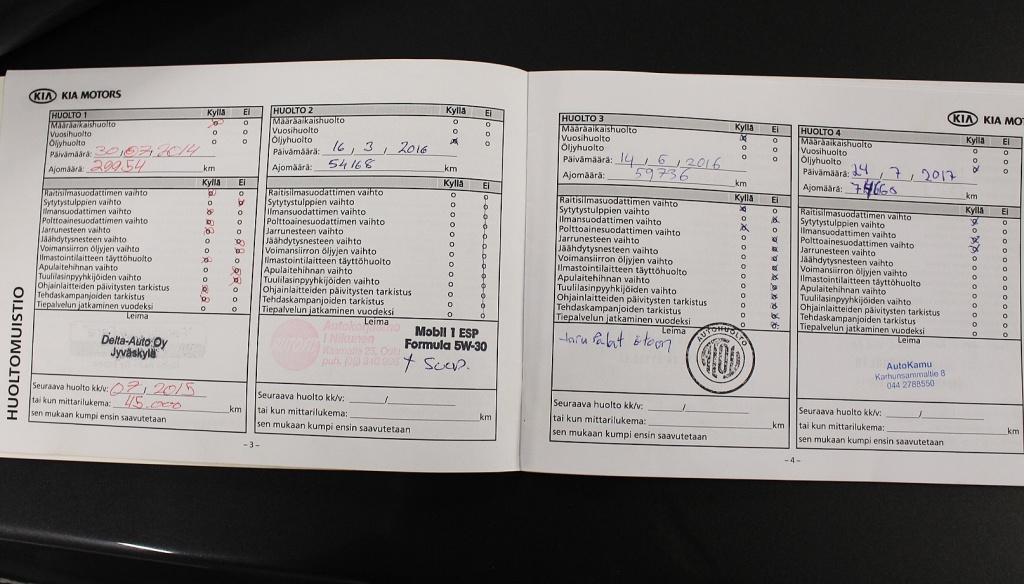 KIA KIA MOTORS
HUOLTOMUISTIO
HUOLTO 1 Kyllä Ei
Määräaikaishuolto
Vuosihuolto
Öljyhuolto
Päivämäärä: 30.07.2014
Ajomäärä: 29954 km
Kyllä Ei
Raitisilmasuodattimen vaihto
Sytytystulppien vaihto
Ilmansuodattimen vaihto
Polttoainesuodattimen vaihto
Jarrunesteen vaihto
Jäähdytysnesteen vaihto
Voimansiirron öljyjen vaihto
Ilmastointilaitteen täyttöhuolto
Apulaitehihnan vaihto
Tuulilasinpyyhkijöiden vaihto
Ohjainlaitteiden päivitysten tarkistus
Tehdaskampanjoiden tarkistus
Tiepalvelun jatkaminen vuodeksi
Leima
Delta-Auto Oy
Jyväskylä
Seuraava huolto kk/v: 07, 2015
tai kun mittarilukema: 45.000 km
sen mukaan kumpi ensin saavutetaan
HUOLTO 2 Kyllä Ei
Määräaikaishuolto
Vuosihuolto
Öljyhuolto
Päivämäärä: 16, 3, 2016
Ajomäärä: 54168 km
Kyllä Ei
Raitisilmasuodattimen vaihto
Sytytystulppien vaihto
Ilmansuodattimen vaihto
Polttoainesuodattimen vaihto
Jarrunesteen vaihto
Jäähdytysnesteen vaihto
Voimansiirron öljyjen vaihto
Ilmastointilaitteen täyttöhuolto
Apulaitehihnan vaihto
Tuulilasinpyyhkijöiden vaihto
Ohjainlaitteiden päivitysten tarkistus
Tehdaskampanjoiden tarkistus
Tiepalvelun jatkaminen vuodeksi
Leima
Mobil 1 ESP
Formula 5W-30
+ suod.
Seuraava huolto kk/v: /
tai kun mittarilukema: km
sen mukaan kumpi ensin saavutetaan
- 3 -
KIA KIA MO
HUOLTO 3 Kyllä Ei
Määräaikaishuolto
Vuosihuolto
Öljyhuolto
Päivämäärä: 14, 6, 2016
Ajomäärä: 59736 km
Kyllä Ei
Raitisilmasuodattimen vaihto
Sytytystulppien vaihto
Ilmansuodattimen vaihto
Polttoainesuodattimen vaihto
Jarrunesteen vaihto
Jäähdytysnesteen vaihto
Voimansiirron öljyjen vaihto
Ilmastointilaitteen täyttöhuolto
Apulaitehihnan vaihto
Tuulilasinpyyhkijöiden vaihto
Ohjainlaitteiden päivitysten tarkistus
Tehdaskampanjoiden tarkistus
Tiepalvelun jatkaminen vuodeksi
Leima
AUTOHUOLTO
Seuraava huolto kk/v: /
tai kun mittarilukema: km
sen mukaan kumpi ensin saavutetaan
HUOLTO 4 Kyllä Ei
Määräaikaishuolto
Vuosihuolto
Öljyhuolto
Päivämäärä: 24, 7, 2017
Ajomäärä: km
Kyllä Ei
Raitisilmasuodattimen vaihto
Sytytystulppien vaihto
Ilmansuodattimen vaihto
Polttoainesuodattimen vaihto
Jarrunesteen vaihto
Jäähdytysnesteen vaihto
Voimansiirron öljyjen vaihto
Ilmastointilaitteen täyttöhuolto
Apulaitehihnan vaihto
Tuulilasinpyyhkijöiden vaihto
Ohjainlaitteiden päivitysten tarkistus
Tehdaskampanjoiden tarkistus
Tiepalvelun jatkaminen vuodeksi
Leima
AutoKamu
Karhunsammaltie 8
044 2788550
Seuraava huolto kk/v: /
tai kun mittarilukema: km
sen mukaan kumpi ensin saavutetaan
- 4 -